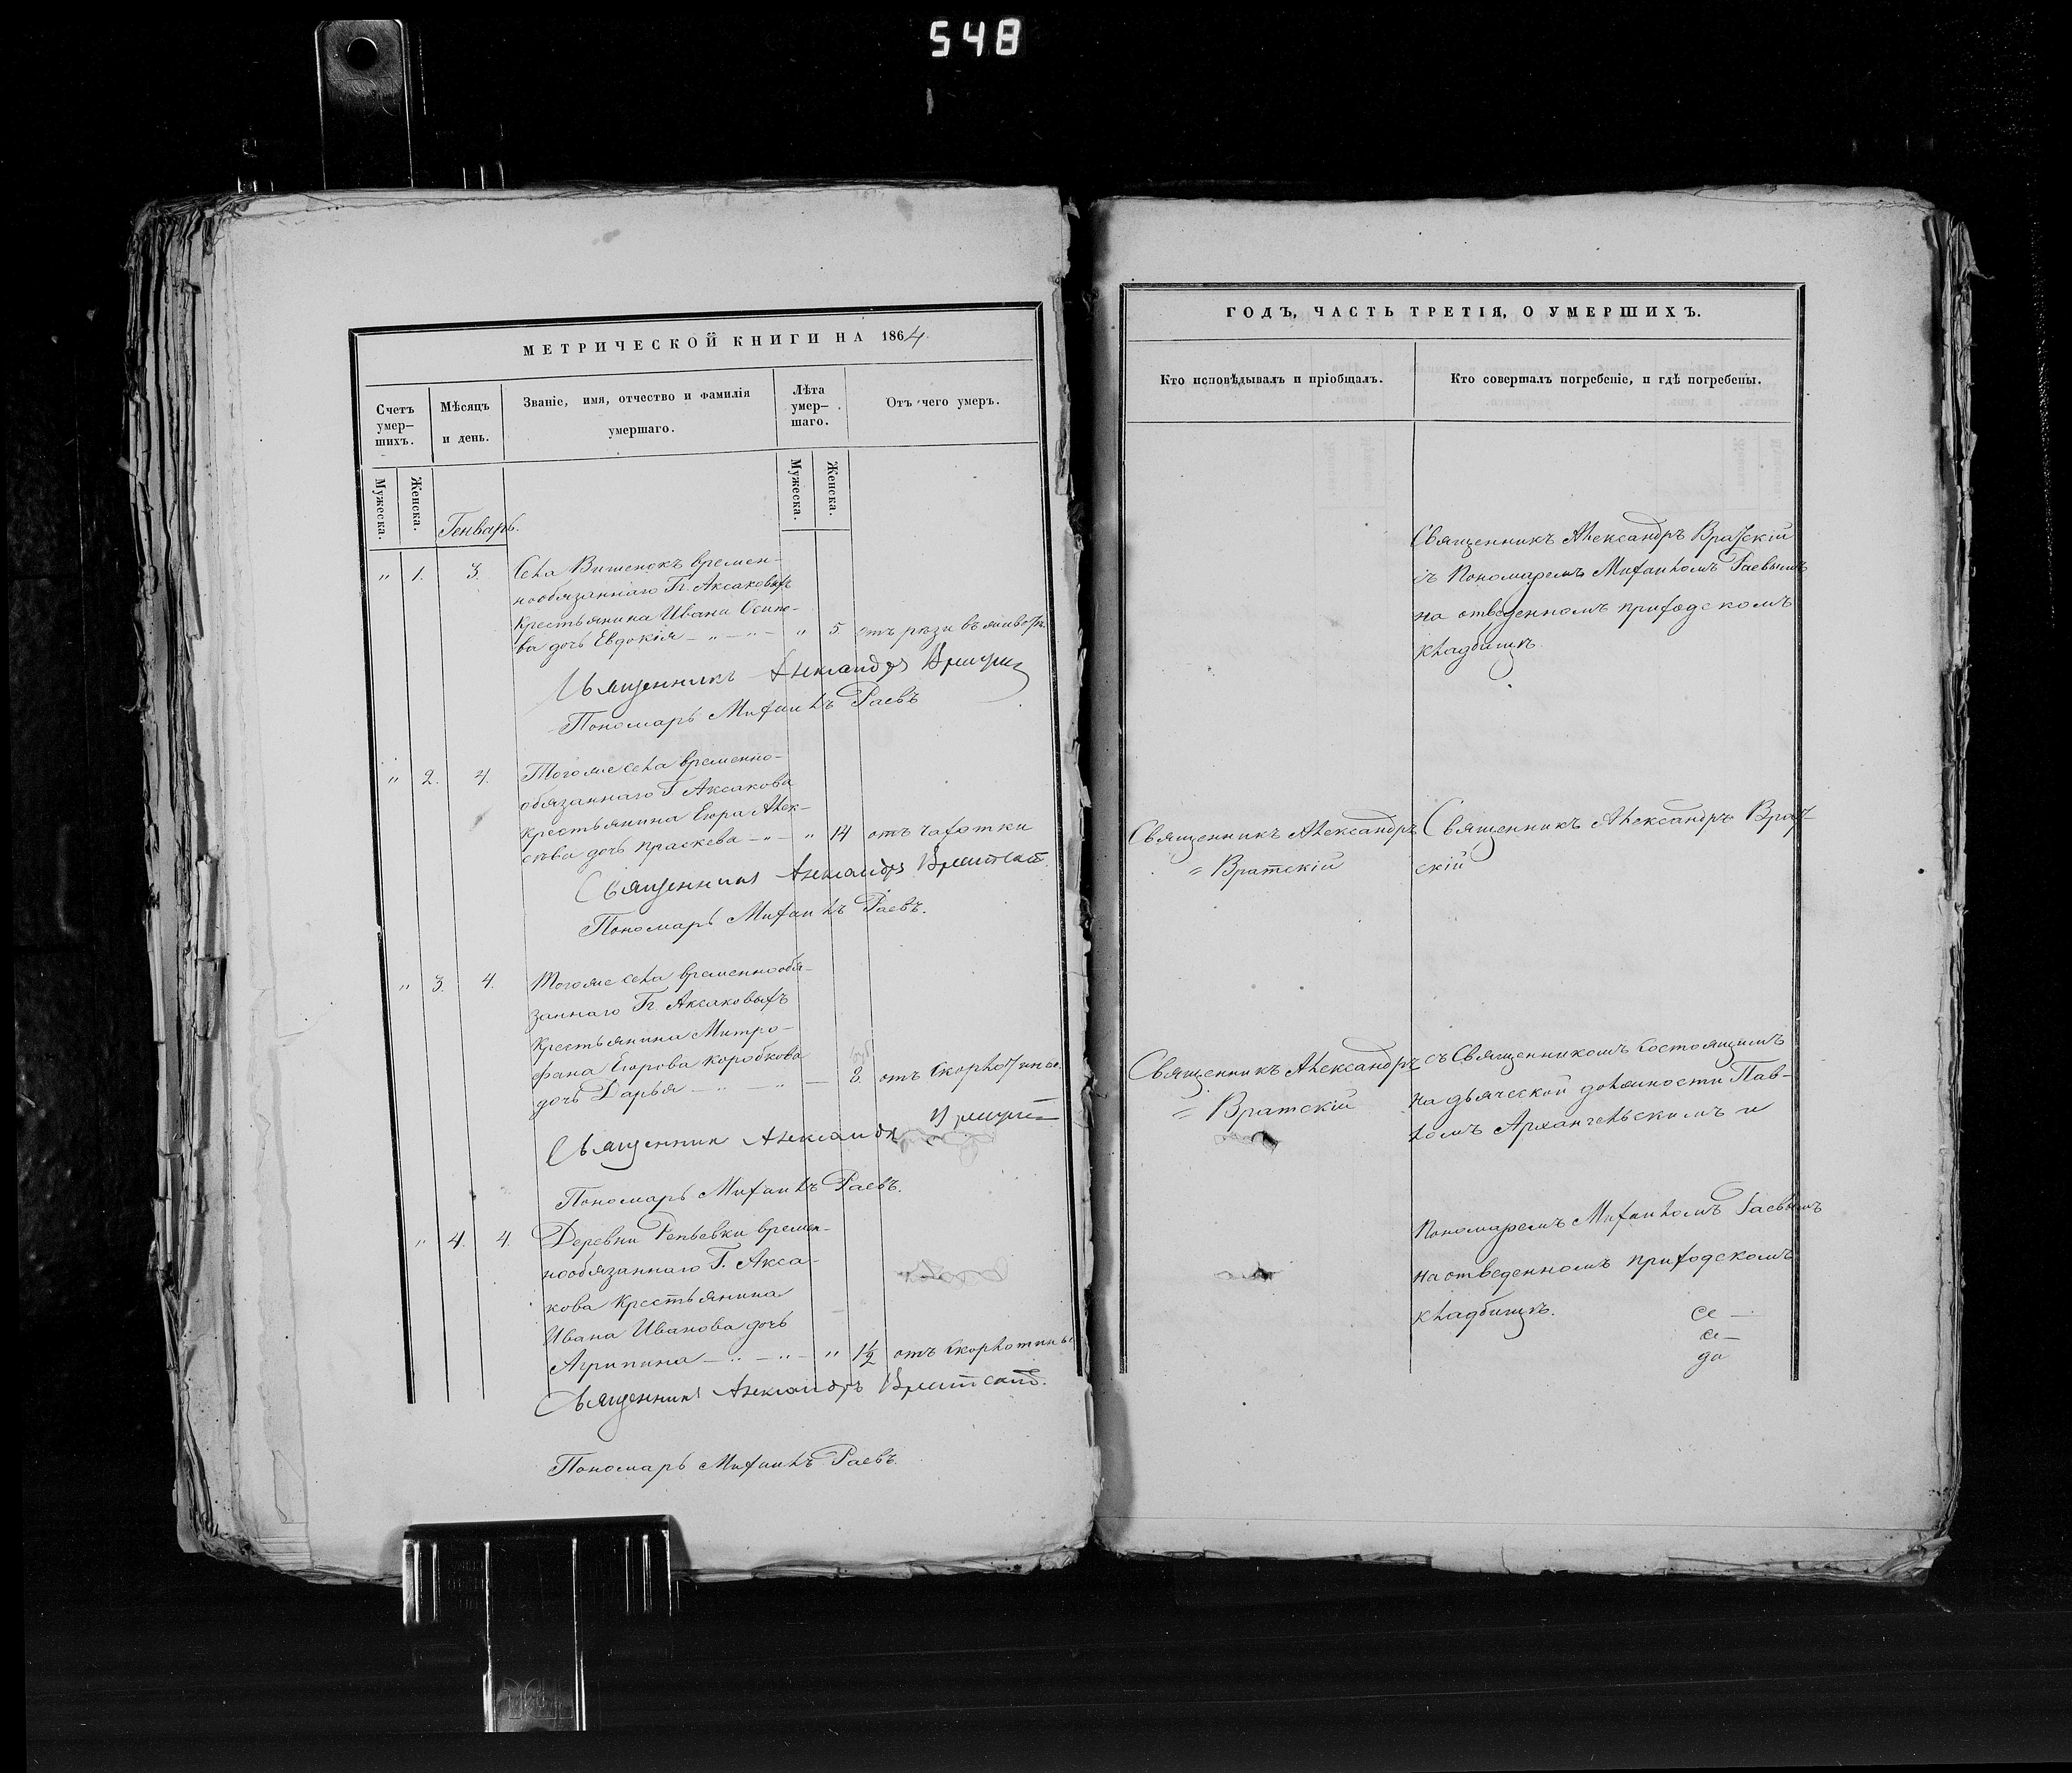 548
МЕТРИЧЕСКОЙ КНИГИ НА 1864.
Счетъ умер-шихъ.
Мѣсяцъ и день.
Званіе, имя, отчество и фамилія умершаго.
Лѣта умер-шаго.
Отъ чего умеръ.
Мужеска.
Женска.
Мужеска.
Женска.
Генварь.
" 1. 3. Села Вишенокъ времен-
нообязаннаго Гг. Аксаковыхъ
крестьянина Ивана Осипо-
ва дочь Евдокія — " — " — " 5. отъ рѣзи въ животѣ
Священникъ Александръ Вратскій
Пономарь Михаилъ Раевъ
" 2. 4. Тогоже села временно-
обязаннаго Г. Аксакова
крестьянина Егора Алек-
сѣева дочь Праскева — " — " 14 отъ чахотки
Священникъ Александръ Вратскій.
Пономарь Михаилъ Раевъ.
" 3. 4. Тогоже села временнообя-
заннаго Гг. Аксаковыхъ
крестьянина Митро-
фана Егорова Коробкова
дочь Дарья — " — " — 8. отъ скорлотины.
Священникъ Александръ Вратскій
Пономарь Михаилъ Раевъ.
" 4. 4. Деревни Репьевки времен-
нообязаннаго Г. Акса-
кова крестьянина
Ивана Иванова дочь
Агрипина — " — " — " 1½ отъ скорлотины
Священникъ Александръ Вратскій.
Пономарь Михаилъ Раевъ.
ГОДЪ, ЧАСТЬ ТРЕТІЯ, О УМЕРШИХЪ.
Кто исповѣдывалъ и пріобщалъ.
Кто совершалъ погребеніе, и гдѣ погребены.
Священникъ Александръ Вратскій
съ Пономаремъ Михаиломъ Раевымъ
на отведенномъ приходскомъ
кладбищѣ.
Священникъ Александръ
= Вратскій
Священникъ Александръ Врат-
скій
Священникъ Александръ
= Вратскій
съ Священникомъ состоящимъ
на дьяческой должности Пав-
ломъ Архангельскимъ и
Пономаремъ Михаиломъ Раевымъ
на отведенномъ приходскомъ
кладбищѣ.
Се —
ле —
да